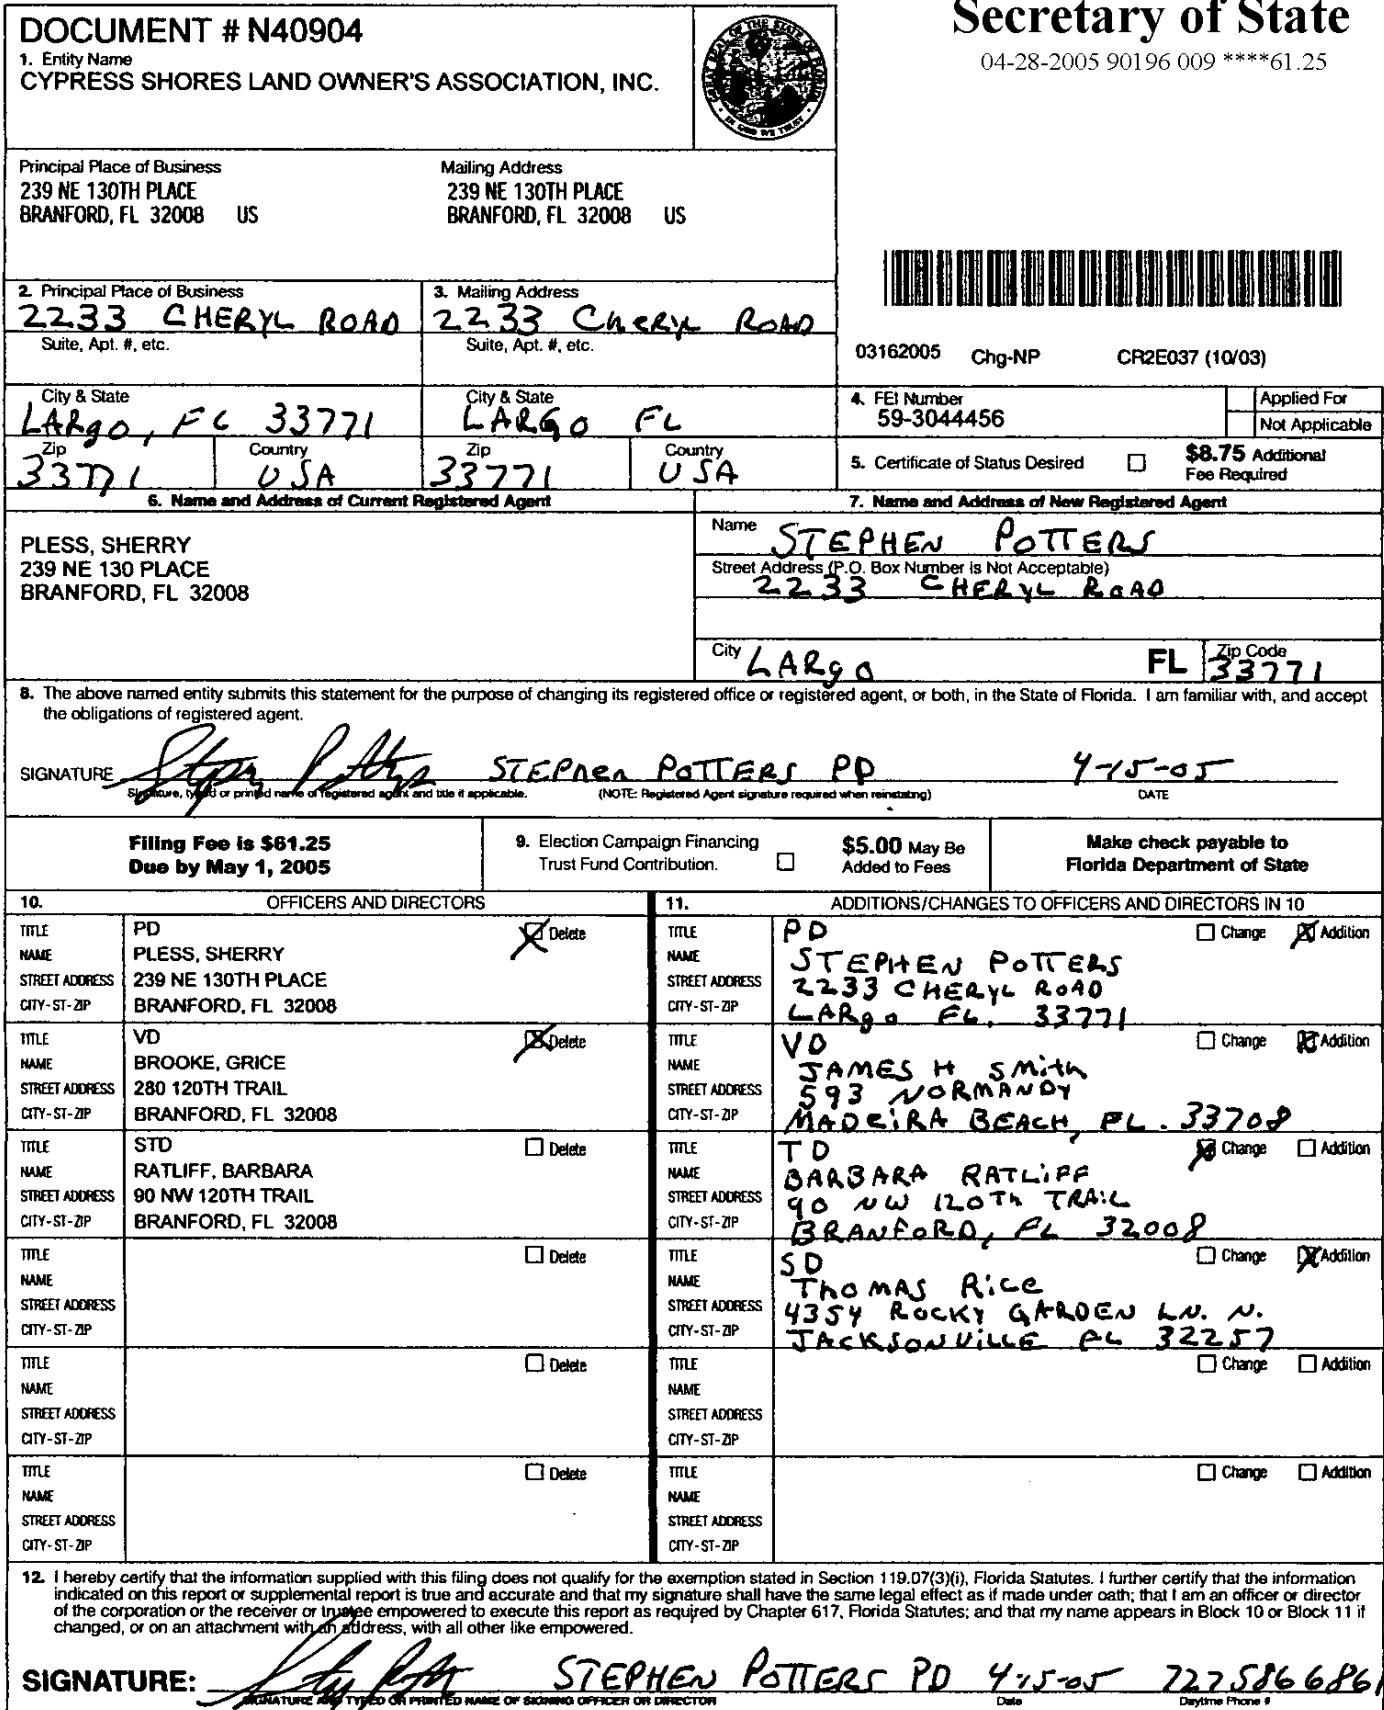 Secretary of State
04-28-2005 90196 009 ****61.25
DOCUMENT # N40904
1. Entity Name
CYPRESS SHORES LAND OWNER'S ASSOCIATION, INC.
Principal Place of Business
239 NE 130TH PLACE
BRANFORD, FL 32008 US
Mailing Address
239 NE 130TH PLACE
BRANFORD, FL 32008 US
2. Principal Place of Business
2233 CHERYL ROAD
Suite, Apt. #, etc.
City & State
LARgo, FL 33771
Zip
33771
Country
USA
3. Mailing Address
2233 CheRYL ROAD
Suite, Apt. #, etc.
City & State
LARGO FL
Zip
33771
Country
USA
03162005 Chg-NP CR2E037 (10/03)
4. FEI Number
59-3044456
Applied For
Not Applicable
5. Certificate of Status Desired
$8.75 Additional
Fee Required
6. Name and Address of Current Registered Agent
PLESS, SHERRY
239 NE 130 PLACE
BRANFORD, FL 32008
7. Name and Address of New Registered Agent
Name STEPHEN POTTERS
Street Address (P.O. Box Number is Not Acceptable)
2233 CHERYL ROAD
City LARgo FL Zip Code 33771
8. The above named entity submits this statement for the purpose of changing its registered office or registered agent, or both, in the State of Florida. I am familiar with, and accept
the obligations of registered agent.
SIGNATURE STEPhen POTTERS PD 4-15-05
Signature, typed or printed name of registered agent and title if applicable. (NOTE: Registered Agent signature required when reinstating) DATE
Filing Fee is $61.25
Due by May 1, 2005
9. Election Campaign Financing
Trust Fund Contribution.
$5.00 May Be
Added to Fees
Make check payable to
Florida Department of State
10. OFFICERS AND DIRECTORS
TITLE PD Delete
NAME PLESS, SHERRY
STREET ADDRESS 239 NE 130TH PLACE
CITY-ST-ZIP BRANFORD, FL 32008
TITLE VD Delete
NAME BROOKE, GRICE
STREET ADDRESS 280 120TH TRAIL
CITY-ST-ZIP BRANFORD, FL 32008
TITLE STD Delete
NAME RATLIFF, BARBARA
STREET ADDRESS 90 NW 120TH TRAIL
CITY-ST-ZIP BRANFORD, FL 32008
TITLE Delete
NAME
STREET ADDRESS
CITY-ST-ZIP
TITLE Delete
NAME
STREET ADDRESS
CITY-ST-ZIP
TITLE Delete
NAME
STREET ADDRESS
CITY-ST-ZIP
11. ADDITIONS/CHANGES TO OFFICERS AND DIRECTORS IN 10
TITLE PD Change Addition
NAME STEPHEN POTTERS
STREET ADDRESS 2233 CHERYL ROAD
CITY-ST-ZIP LARgo FL. 33771
TITLE VD Change Addition
NAME JAMES H SMith
STREET ADDRESS 593 NORMANDY
CITY-ST-ZIP MADEiRA BEACH, FL. 33708
TITLE TD Change Addition
NAME BARBARA RATLiFF
STREET ADDRESS 90 NW 120Th TRAiL
CITY-ST-ZIP BRANFORD, FL 32008
TITLE SD Change Addition
NAME ThoMAS Rice
STREET ADDRESS 4354 ROCKY GARDEN LN. N.
CITY-ST-ZIP JACKSONViLLE FL 32257
TITLE Change Addition
NAME
STREET ADDRESS
CITY-ST-ZIP
TITLE Change Addition
NAME
STREET ADDRESS
CITY-ST-ZIP
12. I hereby certify that the information supplied with this filing does not qualify for the exemption stated in Section 119.07(3)(i), Florida Statutes. I further certify that the information
indicated on this report or supplemental report is true and accurate and that my signature shall have the same legal effect as if made under oath; that I am an officer or director
of the corporation or the receiver or trustee empowered to execute this report as required by Chapter 617, Florida Statutes; and that my name appears in Block 10 or Block 11 if
changed, or on an attachment with an address, with all other like empowered.
SIGNATURE: STEPHEN POTTERS PD 4-15-05 7275866861
SIGNATURE AND TYPED OR PRINTED NAME OF SIGNING OFFICER OR DIRECTOR Date Daytime Phone #